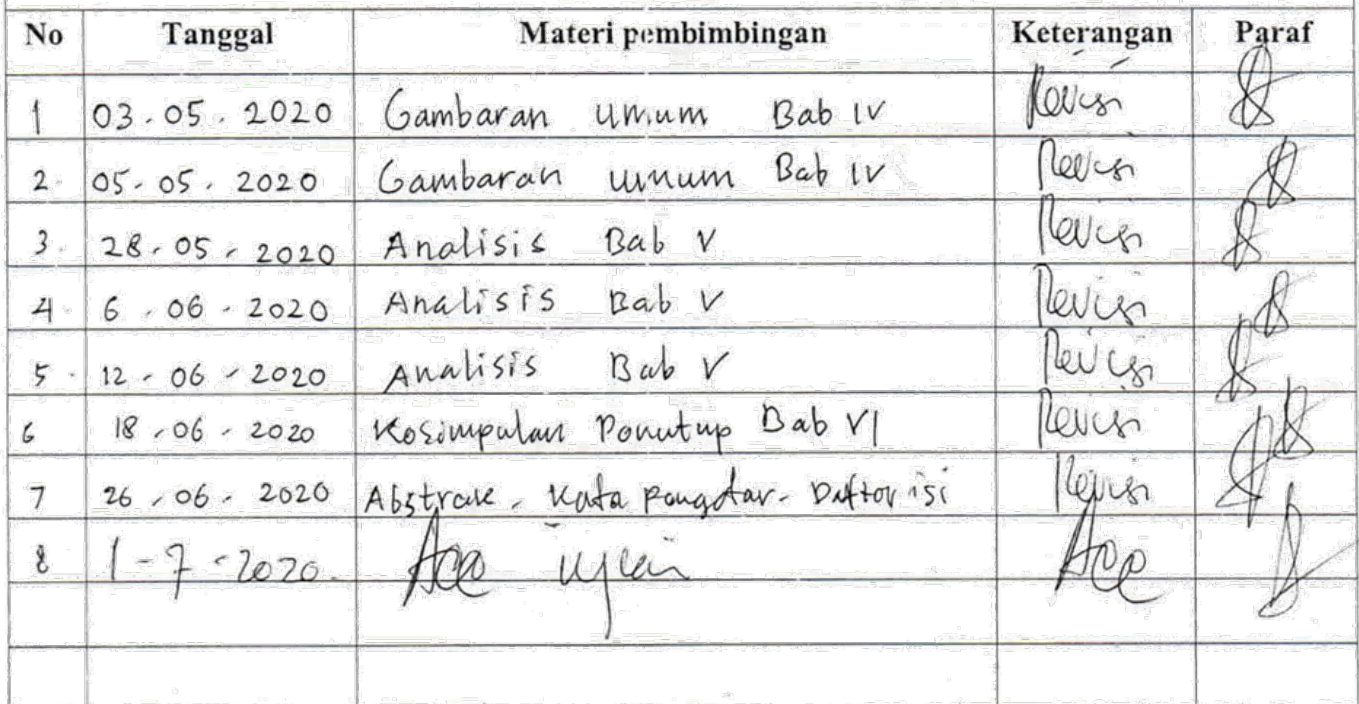 No Tanggal Materi pembimbingan Keterangan Paraf
1 03.05.2020 Gambaran Umum Bab IV Revisi
2. 05-05.2020 Gambaran umum Bab IV Revisi
3. 28.05.2020 Analisis Bab V Revisi
4. 6.06.2020 Analisis Bab V Revisi
5. 12-06-2020 Analisis Bab V Revisi
6 18.06.2020 Kosimpulan Ponutup Bab VI Revisi
7 26.06.2020 Abstrak. Kata pongatar. Daftor isi Revisi
8 1-7-2020. Acc Ujian Acc